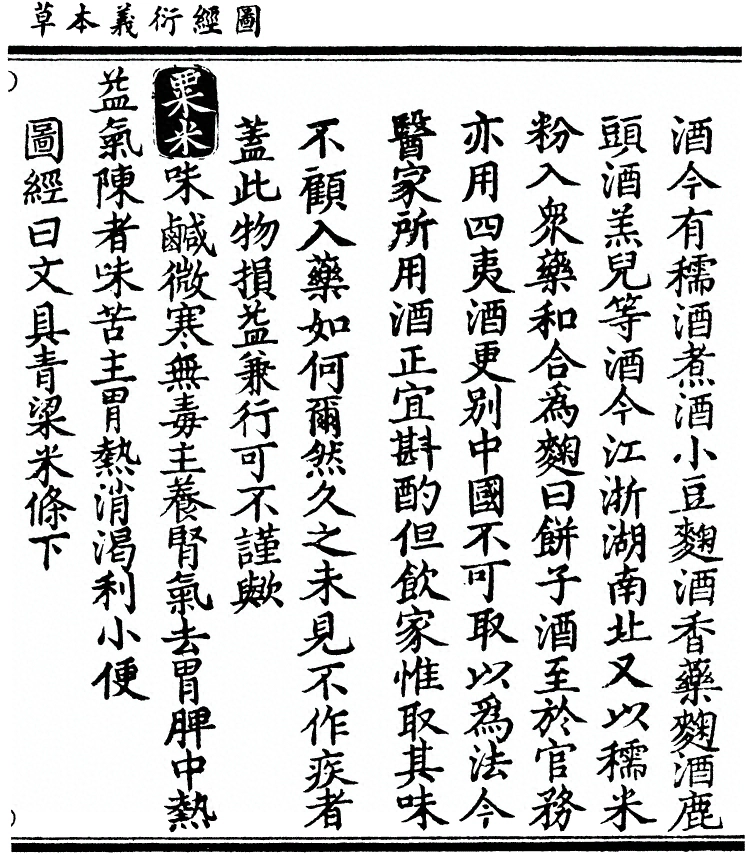 圖經衍義本草
酒今有穤酒煮酒小豆麴酒香藥麴酒鹿
頭酒羔兒等酒今江浙湖南北又以穤米
粉入衆藥和合爲麴曰餅子酒至於官務
亦用四夷酒更別中國不可取以爲法今
醫家所用酒正宜斟酌但飲家惟取其味
不顧入藥如何爾然久之未見不作疾者
蓋此物損益兼行可不謹歟
粟米味鹹微寒無毒主養腎氣去胃脾中熱
益氣陳者味苦主胃熱消渴利小便
圖經曰文具青梁米條下